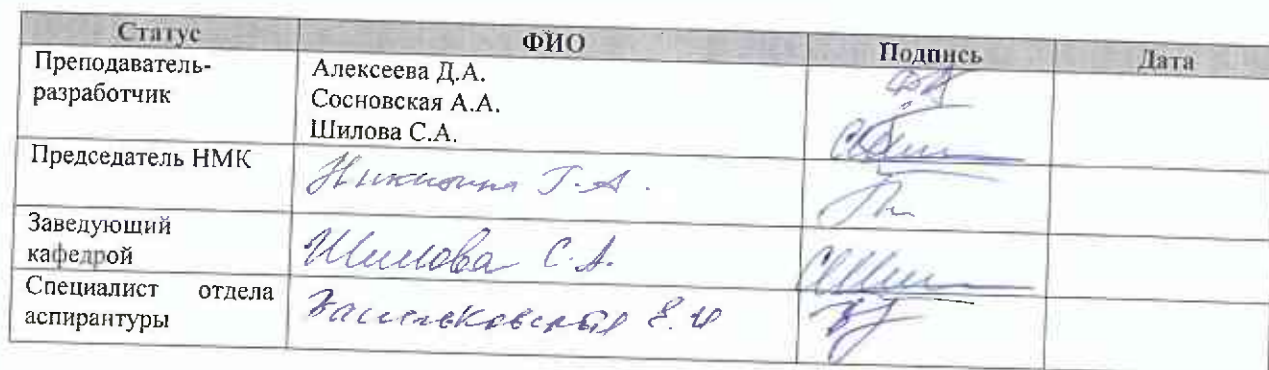 Статус ФИО Подпись Дата
Преподаватель-
разработчик
Алексеева Д.А.
Сосновская А.А.
Шилова С.А.
Председатель НМК
Т.А.
Заведующий
кафедрой
Шилова С.А.
Специалист отдела
аспирантуры